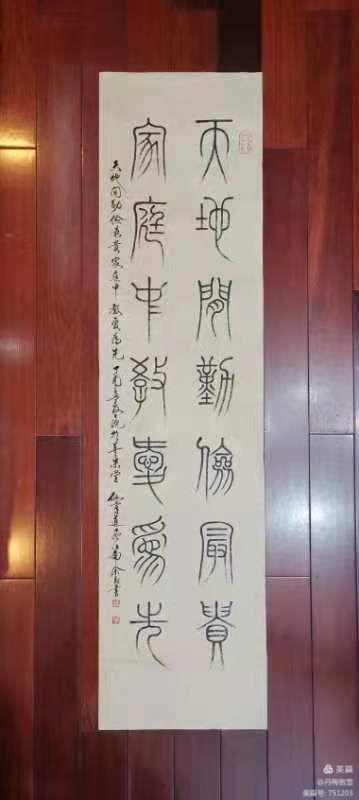 天地间勤俭最贵
家庭中教爱为先
天地间勤俭最贵家庭中教爱为先 丁酉年
美篇
@丹梅傲雪
美篇号: 751203